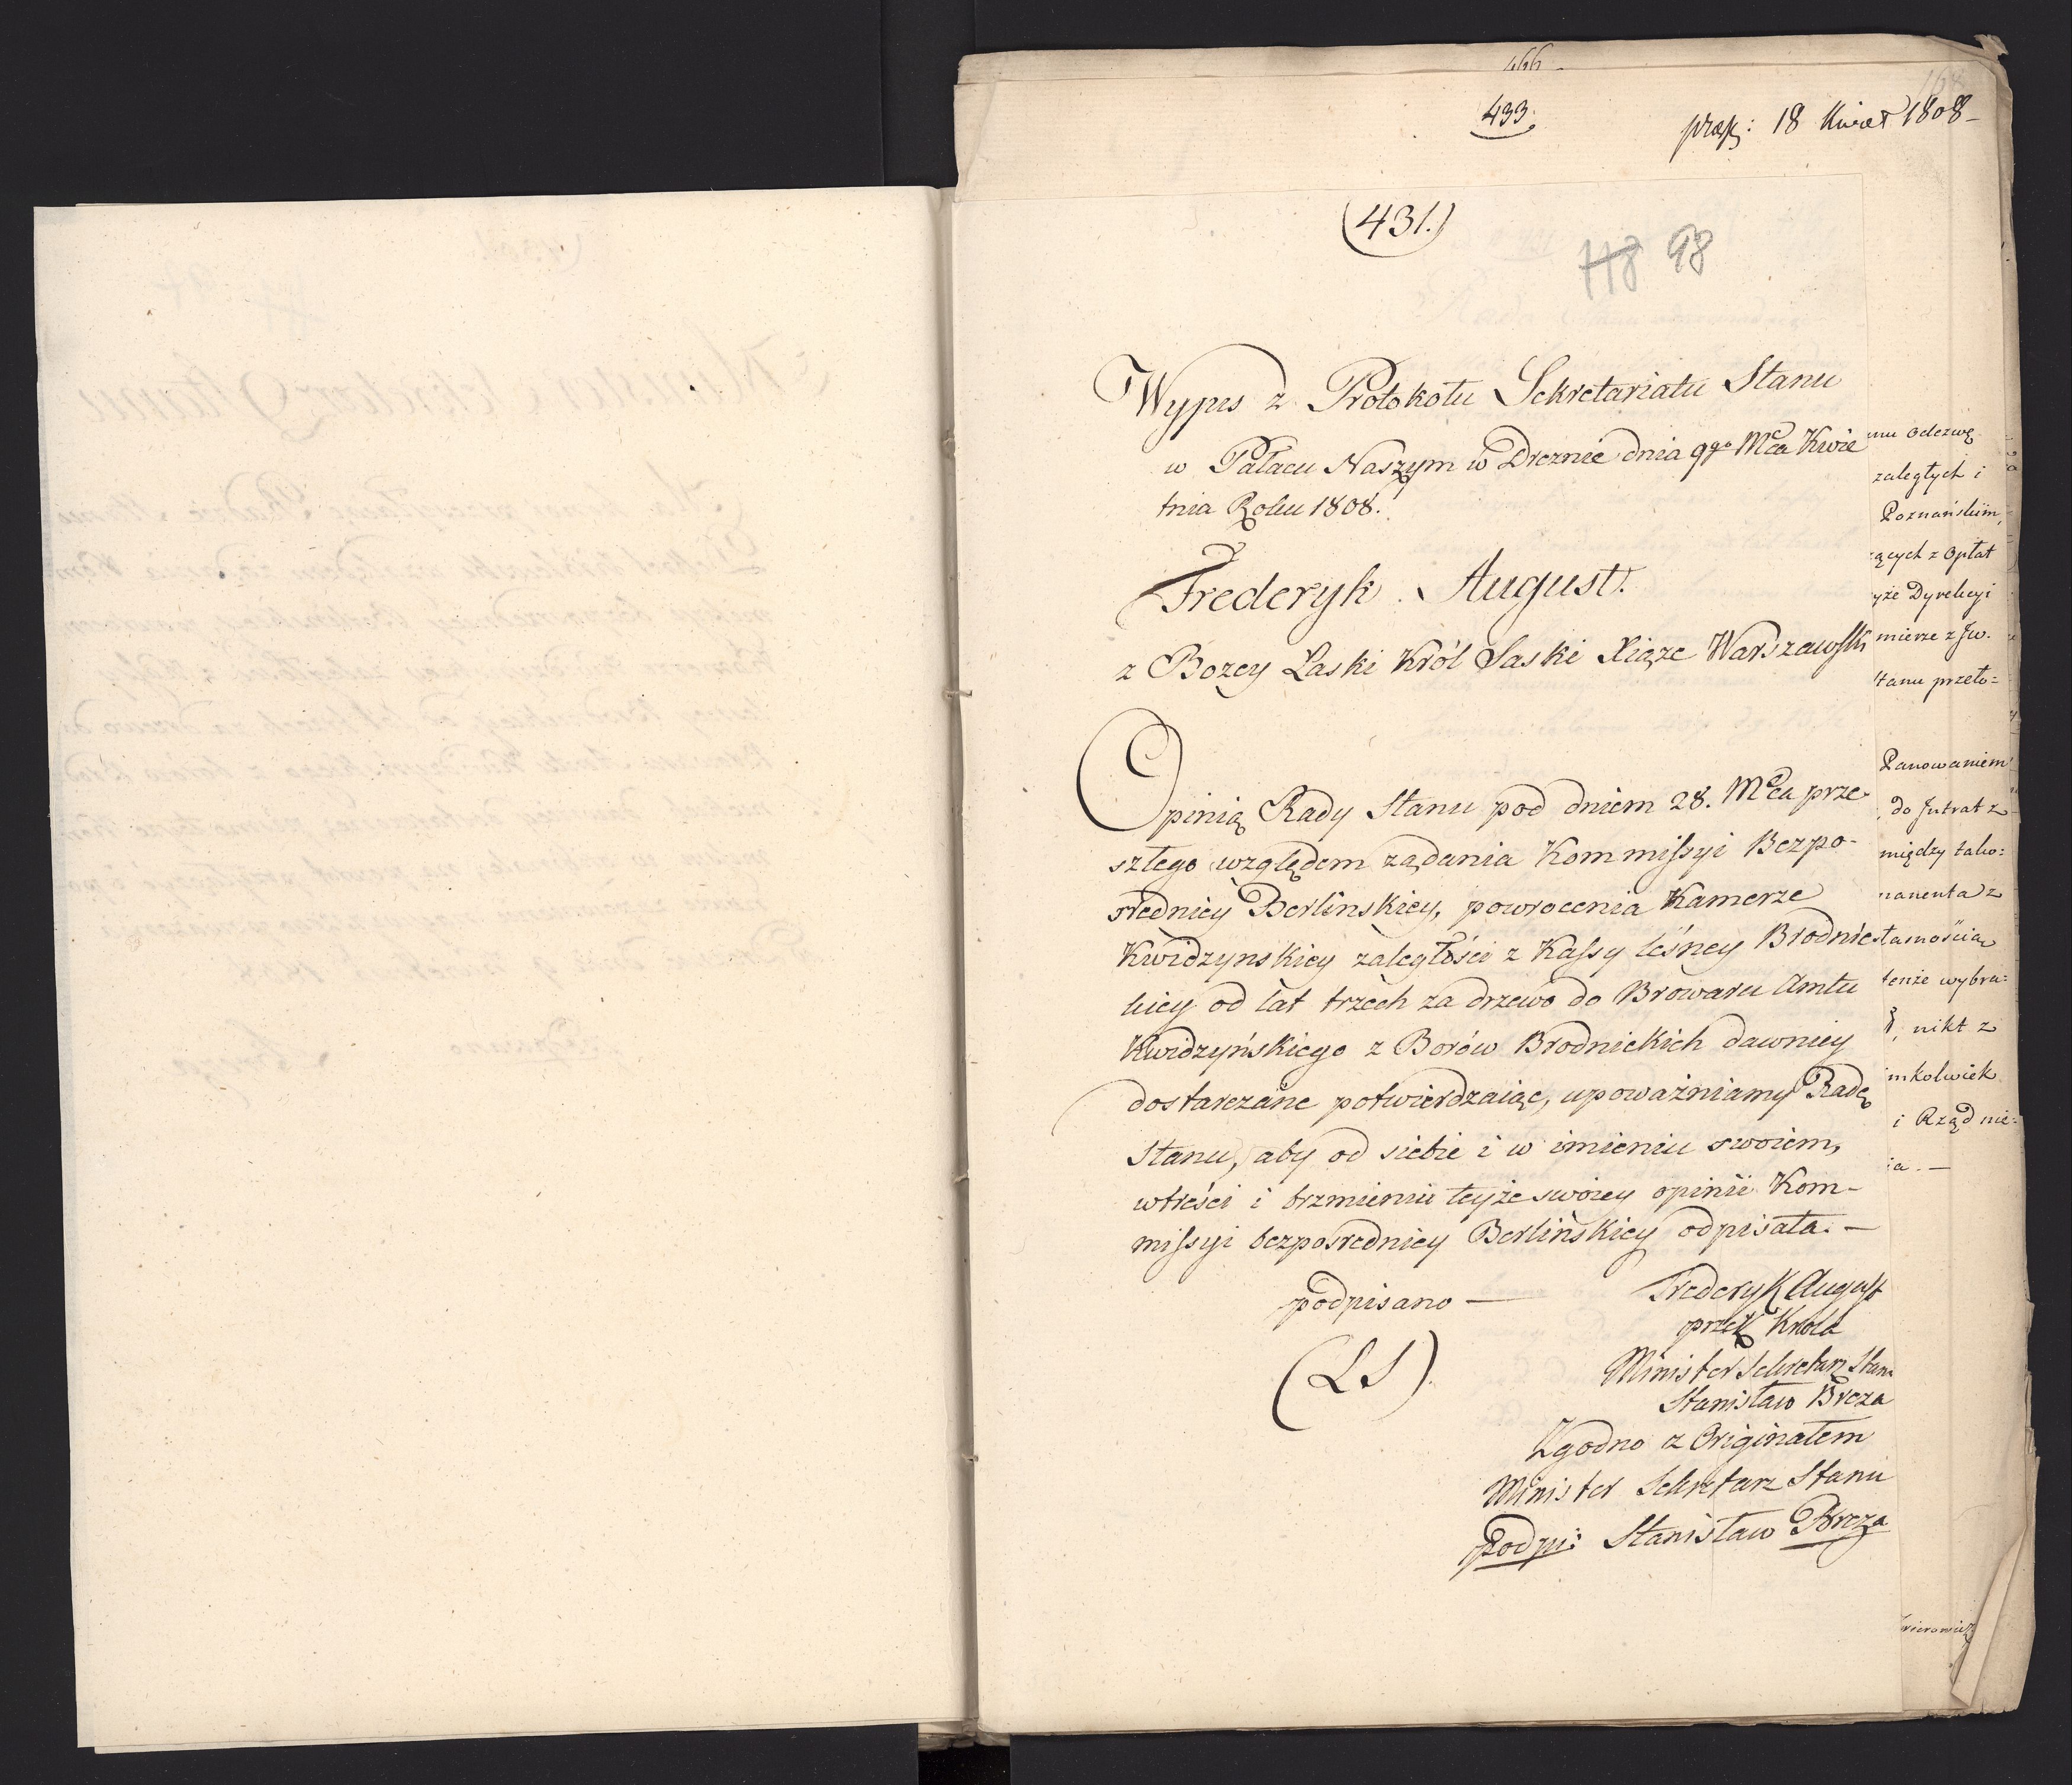 466
433.
præs: 18 Kwiet 1808
(431.)
118 98
Wypis z Protokołu Sekretariatu Stanu
w Pałacu Naszym w Dreznie dnia 9go Mca Kwie
tnia Roku 1808.
Frederyk August.
z Bozey Łaski Król Saski Xiąże Warszawski
Opinią Rady Stanu pod dniem 28. Mca prze-
szłego względem ządania Kommissyi Bezpo-
sredniey Berlinskiey, powrocenia Kamerze
Kwidzynskiey zaległości z Kassy leśney Brodnic
kiey od lat trzech za drzewo do Browaru Amtu
Kwidzyńskiego z Borów Brodnickich dawniey
dostarczane potwierdzaiąc, upoważniamy Radę
Stanu, aby od siebie i w imieniu swoiem,
wtreści i brzmieniu teyże swoiey opinii Kom-
missyi bezpośredniey Berlińskiey odpisała. —
podpisano — Frederyk August
przez Króla
(LS). Minister Sekretarz Stanu
Stanisław Breza
Zgodno z Originałem
Minister Sekretarz Stanu
Podpi: Stanisław Breza
odezwę
zaległych i
Poznańskim,
ących z Opłat
yże Dyrekcyi
mierze z Jw.
Stanu przeło=
Panowaniem
, do Jntrat z
między tako:
nanenta z
stamością
tenże wybra=
, nikt z
imkolwiek
i Rząd nie=
ia. —